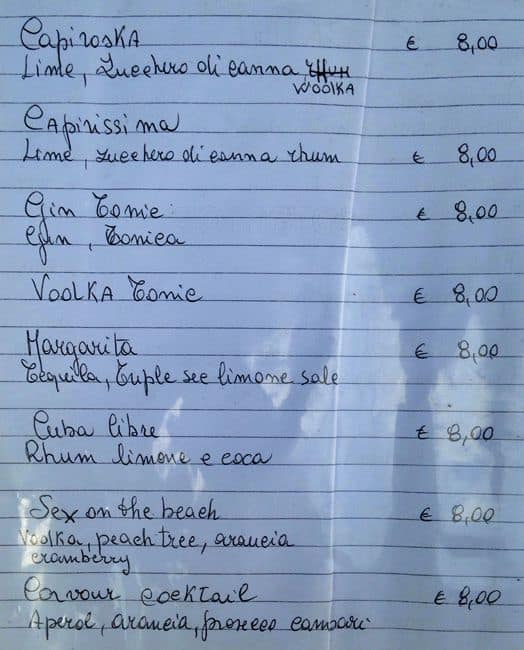 Capiroska € 8,00
Lime, Zucchero di canna, rhum
WODKA
Capirissima
Lime, zucchero di canna rhum € 8,00
Gin Tonic € 8,00
Gin, Tonica
VODKA Tonic € 8,00
Margarita € 8,00
Tequila, Triple sec limone sale
Cuba libre € 8,00
Rhum limone e coca
Sex on the beach € 8,00
Vodka, peach tree, arancia
cramberry
Cavour cocktail € 8,00
Aperol, arancia, prosecco campari